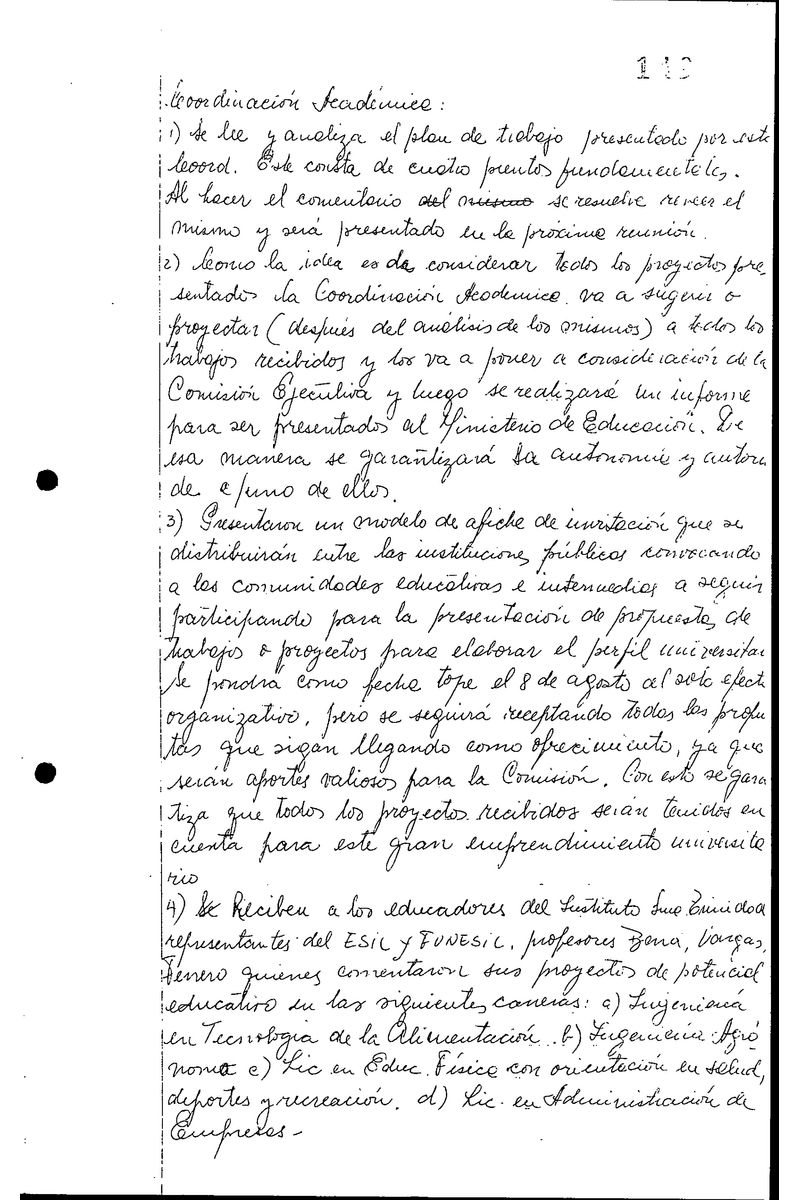 Coordinación Académica:
1) Se lee y analiza el plan de trabajo presentado por esta
Coord. Este consta de cuatro puntos fundamentales.
Al hacer el comentario del mismo se resuelve reveer el
mismo y será presentado en la próxima reunión.
2) Como la idea es de considerar todos los proyectos pre
sentados la Coordinación Academica va a sugerir o
proyectar (después del análisis de los mismos) a todos los
trabajos recibidos y los va a poner a consideración de la
Comisión Ejecutiva y luego se realizará un informe
para ser presentados al Ministerio de Educación. De
esa manera se garantizará la autonomía y autoría
de c/uno de ellos.
3) Presentaron un modelo de afiche de invitación que se
distribuirán entre las instituciones públicas convocando
a las comunidades educativas e intermedias a seguir
participando para la presentación de propuestas de
trabajos o proyectos para elaborar el perfil universitar
Se pondrá como fecha tope el 8 de agosto al solo efect
organizativo, pero se seguirá receptando todas las propu
tas que sigan llegando como ofrecimiento, ya que
serán aportes valiosos para la Comisión. Con esto se gara
tiza que todos los proyectos recibidos serán tenidos en
cuenta para este gran emprendimiento universita
rio
4) Se Reciben a los educadores del Instituto Sma. Trinidad
representantes del ESIL y FUNESIL, profesores Vargas,
quienes comentaron sus proyectos de potencial
educativo en las siguientes carreras: a) Ingeniería
en Tecnología de la Alimentación. b) Ingeniería Agró
noma c) Lic en Educ. Física con orientación en salud,
deportes y recreación. d) Lic. en Administración de
Empresas -